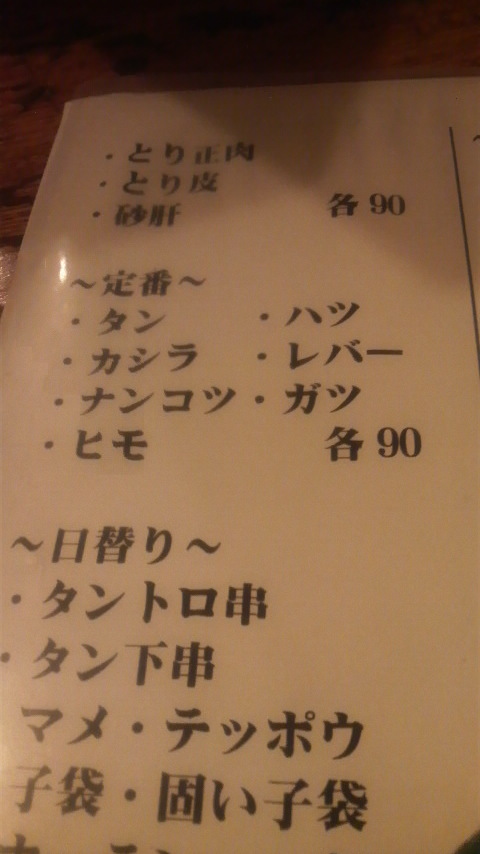 ・とり正肉
・とり皮
・砂肝 各90
～定番～
・タン ・ハツ
・カシラ ・レバー
・ナンコツ・ガツ
・ヒモ 各90
～日替り～
・タントロ串
・タン下串
マメ・テッポウ
子袋・固い子袋